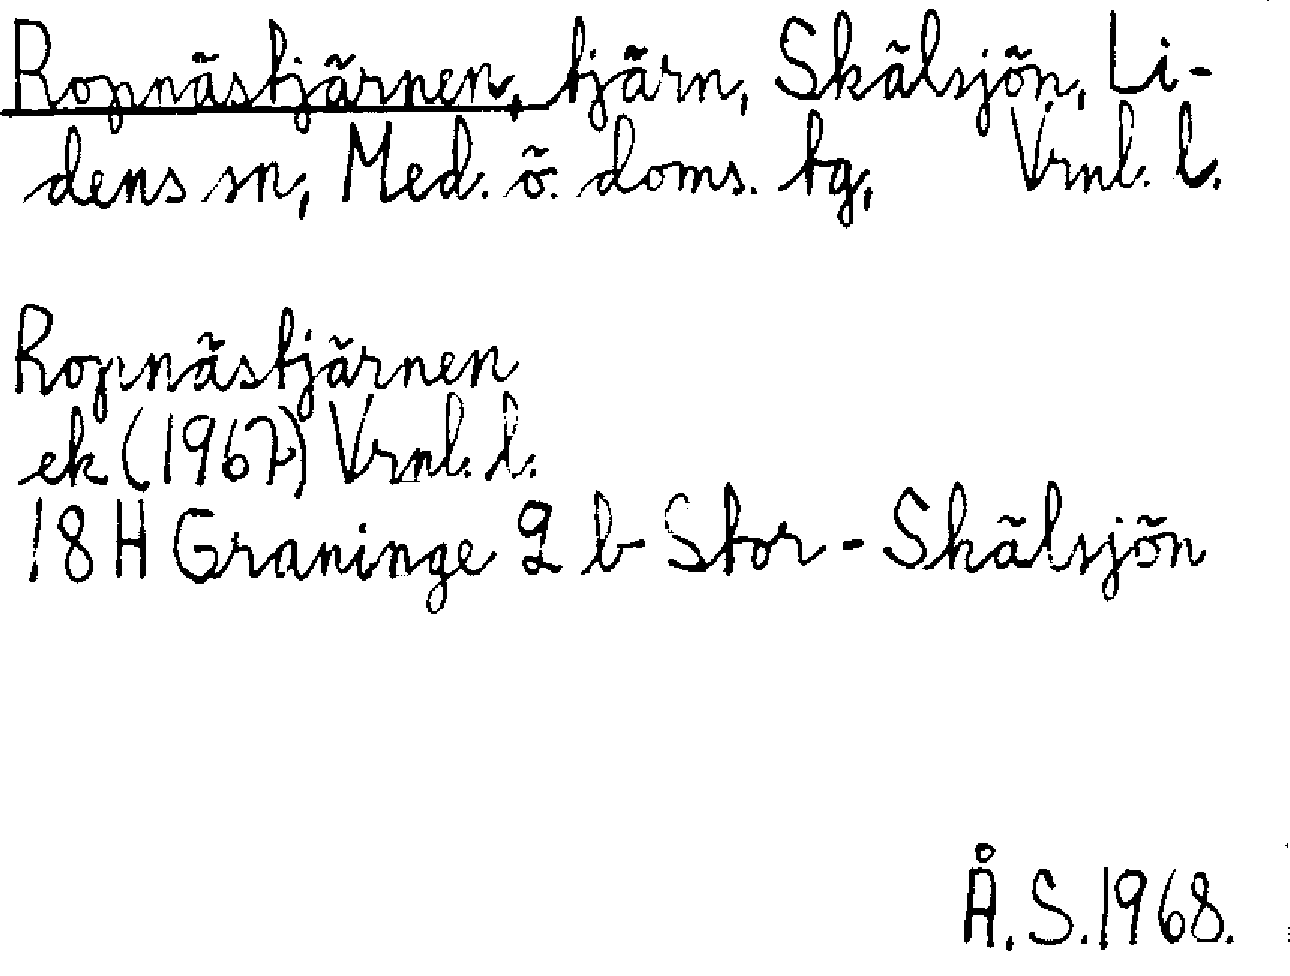 Ropnästjärnen, tjärn, Skälsjön, Li-
dens sn, Med. ö. doms. tg, Vrnl. l.
Ropnästjärnen
ek (1967) Vrnl. l.
18H Graninge 2 b Stor-Skälsjön
Å.S.1968.